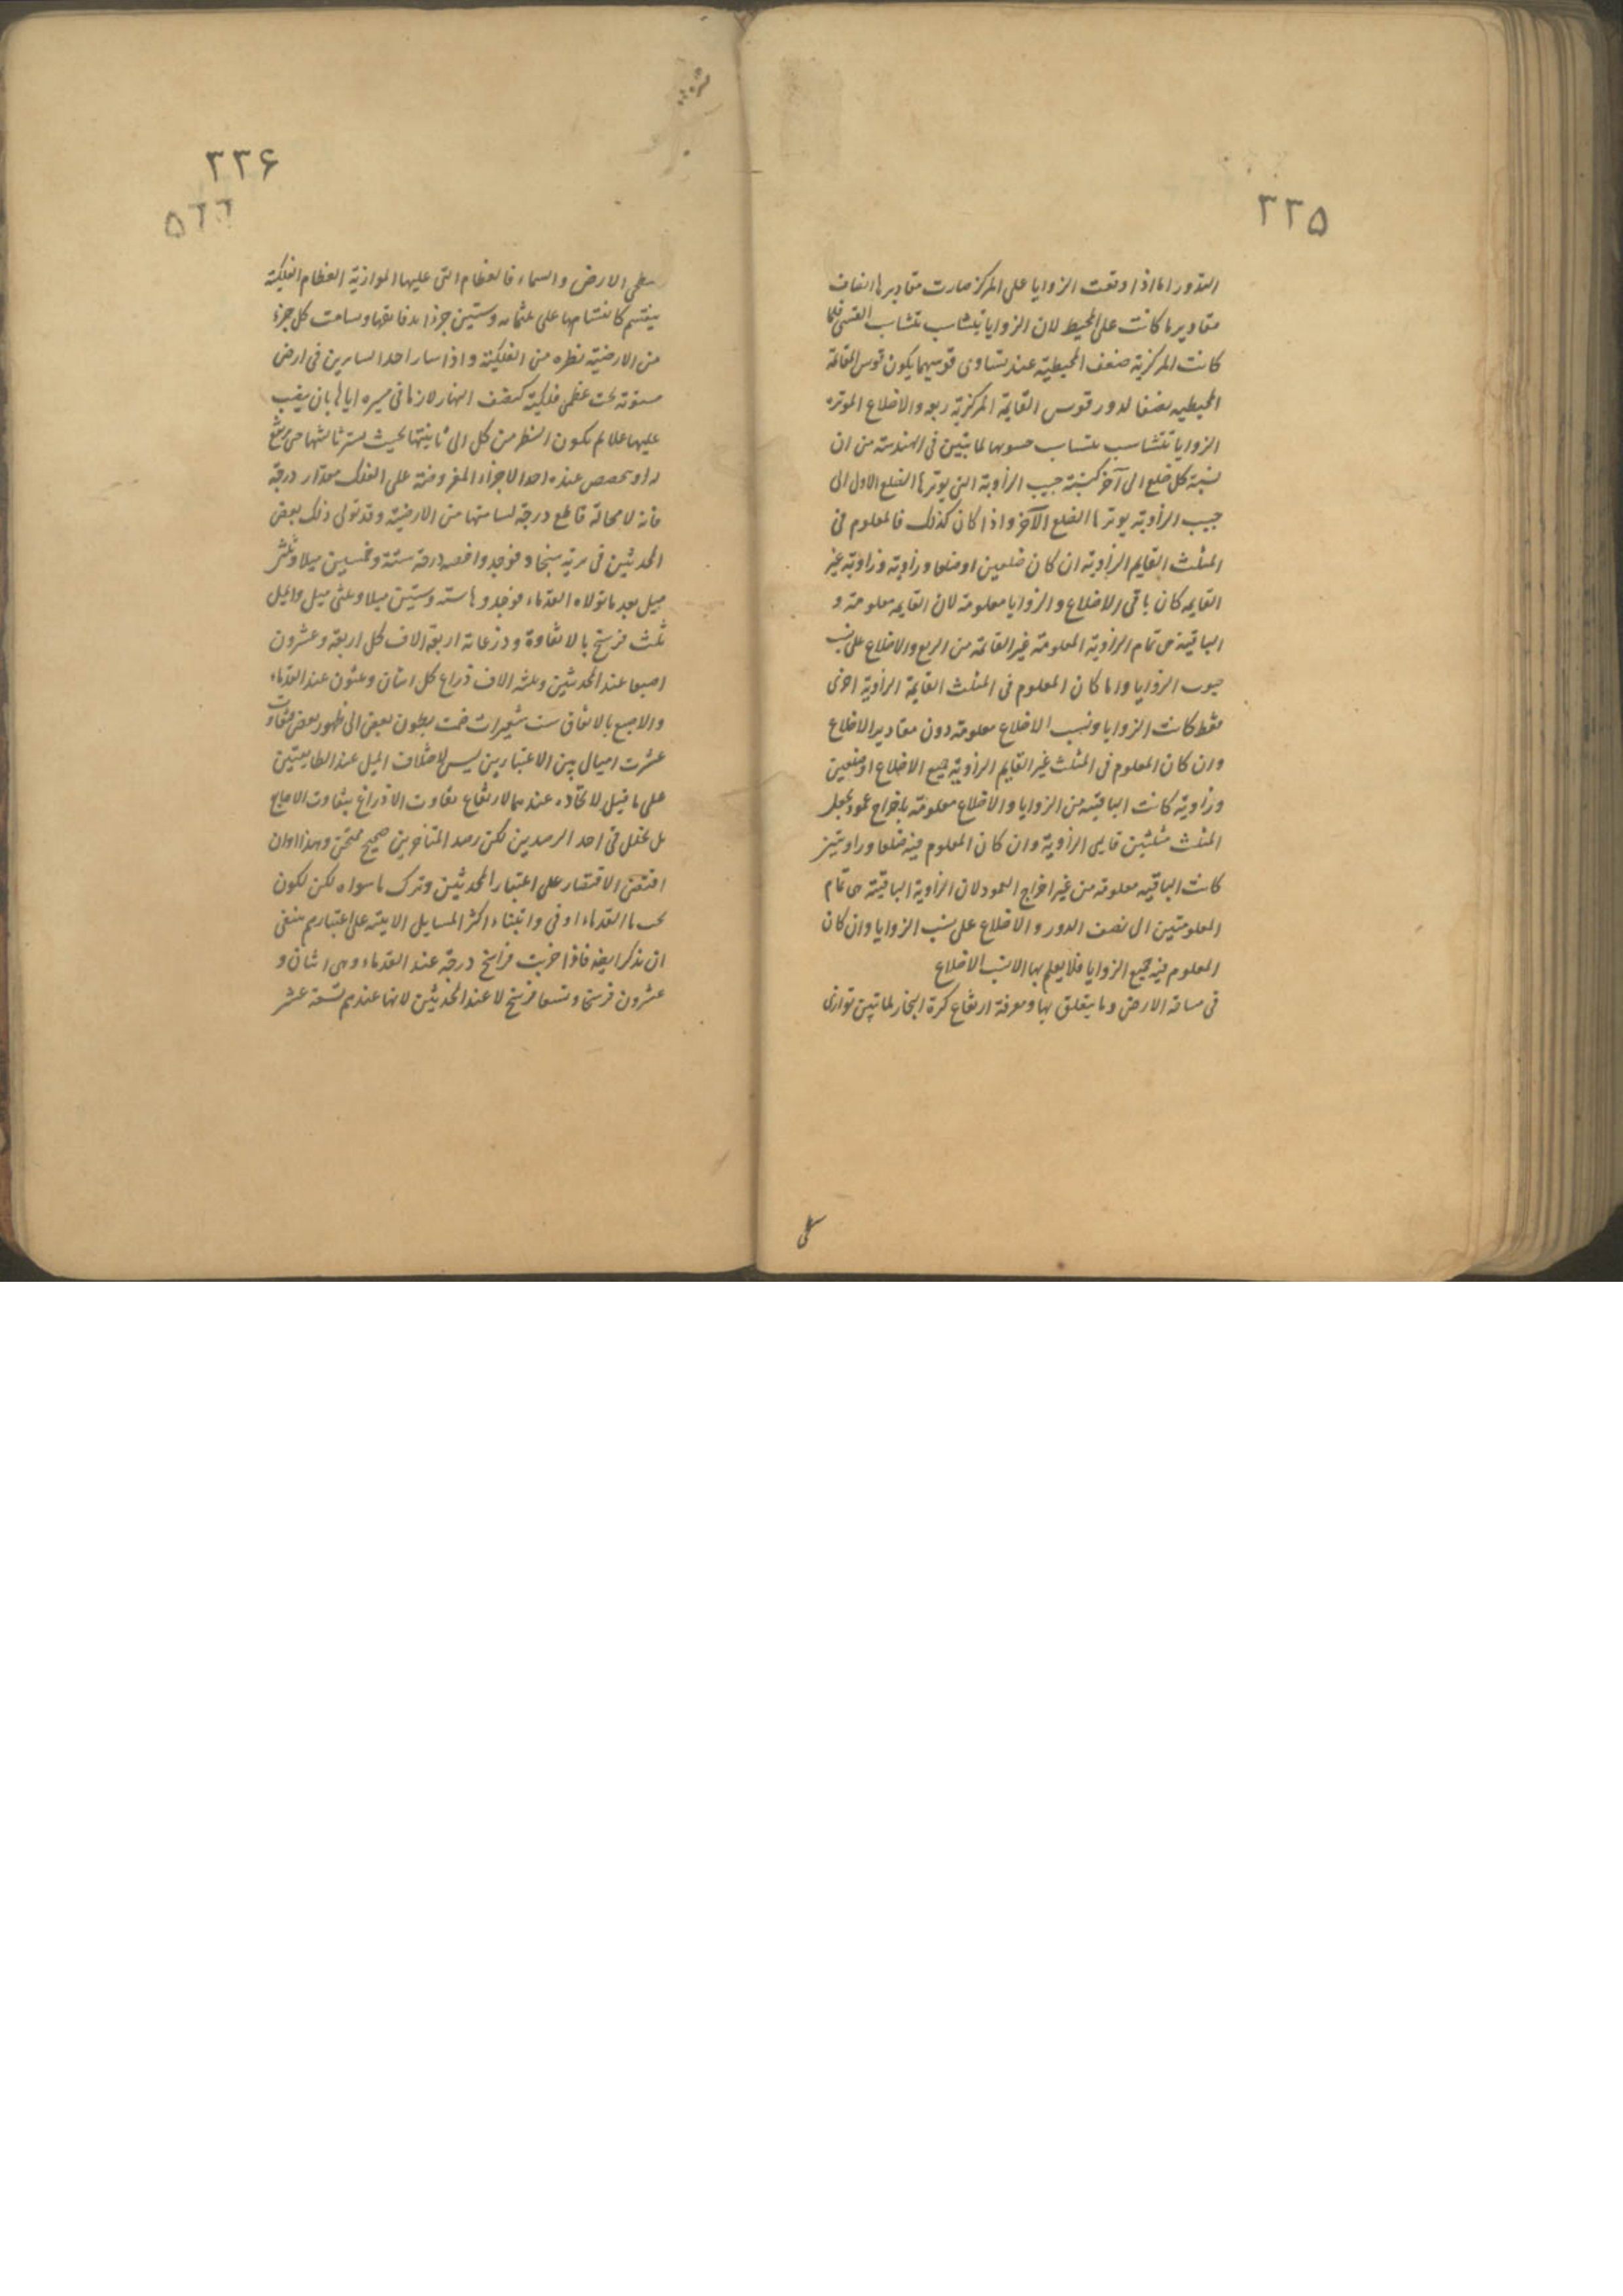 ٣٣۵
التدوير اما اذا وقعت الزوايا على المركز صارت مقاديرها انصاف
مقادير ما كانت على المحيط لان الزوايا تتشاب بتشاب القسى فلما
كانت المركزية ضعف المحيطية عند تساوى قوسيهما يكون قوس القائمة
المحيطيه نصفا لدور قوس القايمة المركزية ربعه والاضلاع الموترة
الزوايا تتناسب بتناسب جيوبها لما تبين فى الهندسة من ان
نسبة كل ضلع الى آخر كنسبة جيب الزاوية التى يوترها الضلع الاول الى
جيب الزاوية يوترها الضلع الآخر واذا كان كذلك فالمعلوم فى
المثلث القايم الزاوية ان كان ضلعين او ضلعا وزاوية وزاوية غير
القايمه كان باقى الاضلاع والزوايا معلومة لان القايمه معلومة و
الباقية هى تمام الزاوية المعلومة غير القائمة من الربع والاضلاع على نسب
جيوب الزوايا واما كان المعلوم فى المثلث القايمة الزاوية اخرى
فقط كانت الزوايا ونسب الاضلاع معلومة دون مقادير الاضلاع
وان كان المعلوم فى المثلث غير القايم الزاوية جميع الاضلاع او ضلعين
وزاوية كانت الباقيه من الزوايا والاضلاع معلومة باخراج عمود يجعل
المثلث مثلثين قايمى الزاوية وان كان المعلوم فيه ضلعا وزاويتين
كانت الباقيه معلومة من غير اخراج العمود لان الزاوية الباقية هى تمام
المعلومتين الى نصف الدور والاضلاع على نسب الزوايا وان كان
المعلوم فيه جميع الزوايا فلا يعلم بها الا نسب الاضلاع
فى مساحة الارض وما يتعلق بها ومعرفة ارتفاع كرة البخار لما تبين توازى
٣٣۶
۵٦٦
سطحى الارض والسماء فالعظام التى عليها الموازية العظام الفلكية
ينقسم كانقسامها على ثلثمائه وستين جزءا بدقائقها ويسامت كل جزء
من الارضية نظيره من الفلكية واذا سار احد السايرين فى ارض
مستوية تحت عظمى فلكية كنصف النهار لازما فى مسيره اياها بان ينصب
عليها علايم يكون النظر من كل الى ثانيتها بحيث يستر ثالثتها حتى يرتفع
له او ينخفض عنده احد الاجزاء المفروضة على الفلك مقدار درجة
فانه لا محالة قاطع درجة تسامتها من الارضية وقد تولى ذلك بعض
المحدثين فى برية سنجار فوجدوا حصة درجة ستة وخمسين ميلا وثلثى
ميل بعد ما تولاه القدماء فوجدوها ستة وستين ميلا وثلثى ميل والميل
ثلث فرسخ بالاتفاق وذرعانه اربعة الاف كل اربعة وعشرون
اصبعا عند المحدثين وثلثه الاف ذراع كل اثنان وثلثون عند القدماء
والاصبع بالاتفاق ست شعيرات ضمت بطون بعض الى ظهور بعض فتفاوت
عشرت اميال بين الاعتبارين ليس لاختلاف الميل عند الطايفتين
على ما قيل لاتحاده عندهما لارتفاع تفاوت الاذرع بتفاوت الاصابع
بل لخلل فى احد الرصدين لكن رصد المتأخرين صحيح ممتحن وهذا وان
اقتضى الاقتصار على اعتبار المحدثين وترك ما سواه لكن لكون
كتب القدماء اوفى وابتناء اكثر المسايل الاتية على اعتبارهم ينبغى
ان يذكر ايضا فاذا ضربت فراسخ درجة عند القدماء وهى اثنان و
عشرون فرسخا وتسعا فرسخ لا عند المحدثين لانها عندهم تسعة عشر
سطحى